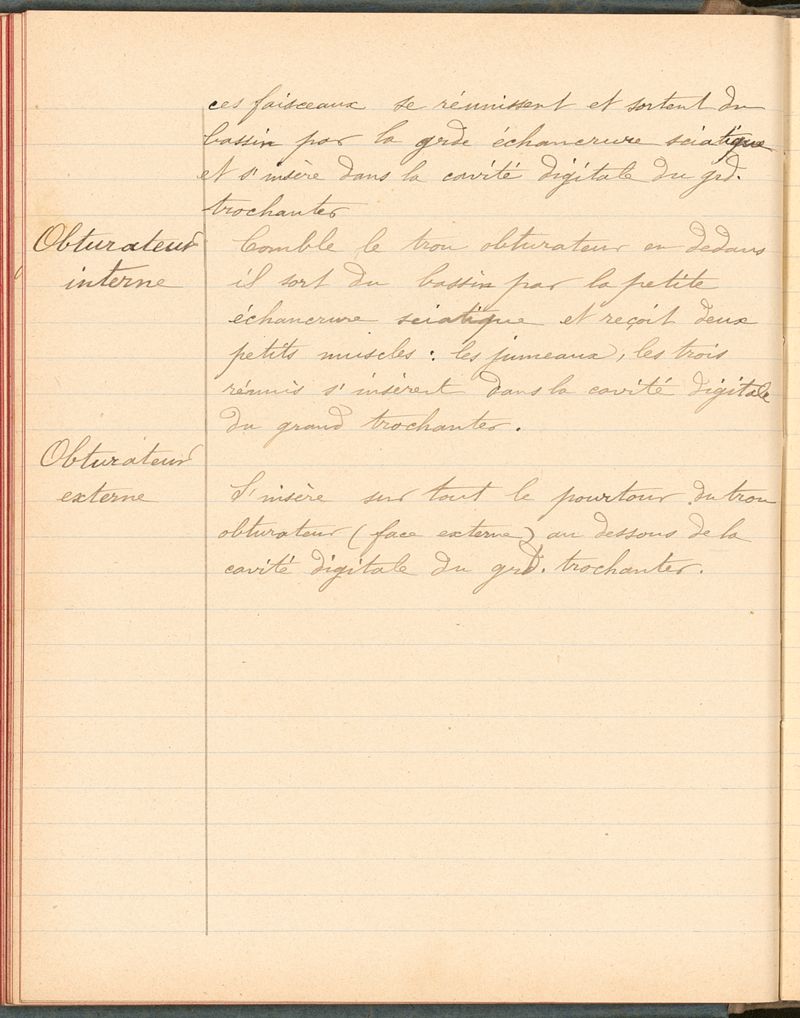 ces faisceaux se réunissent et sortent du
bassin par la grde échancrure sciatique
et s'insère dans la cavité digitale du grd.
trochanter
Obturateur
interne
Comble le trou obturateur en dedans
il sort du bassin par la petite
échancrure sciatique et reçoit deux
petits muscles : les jumeaux, les trois
réunis s'insèrent dans la cavité digitale
du grand trochanter.
Obturateur
externe
S'insère sur tout le pourtour du trou
obturateur (face externe) au dessous de la
cavité digitale du grd. trochanter.